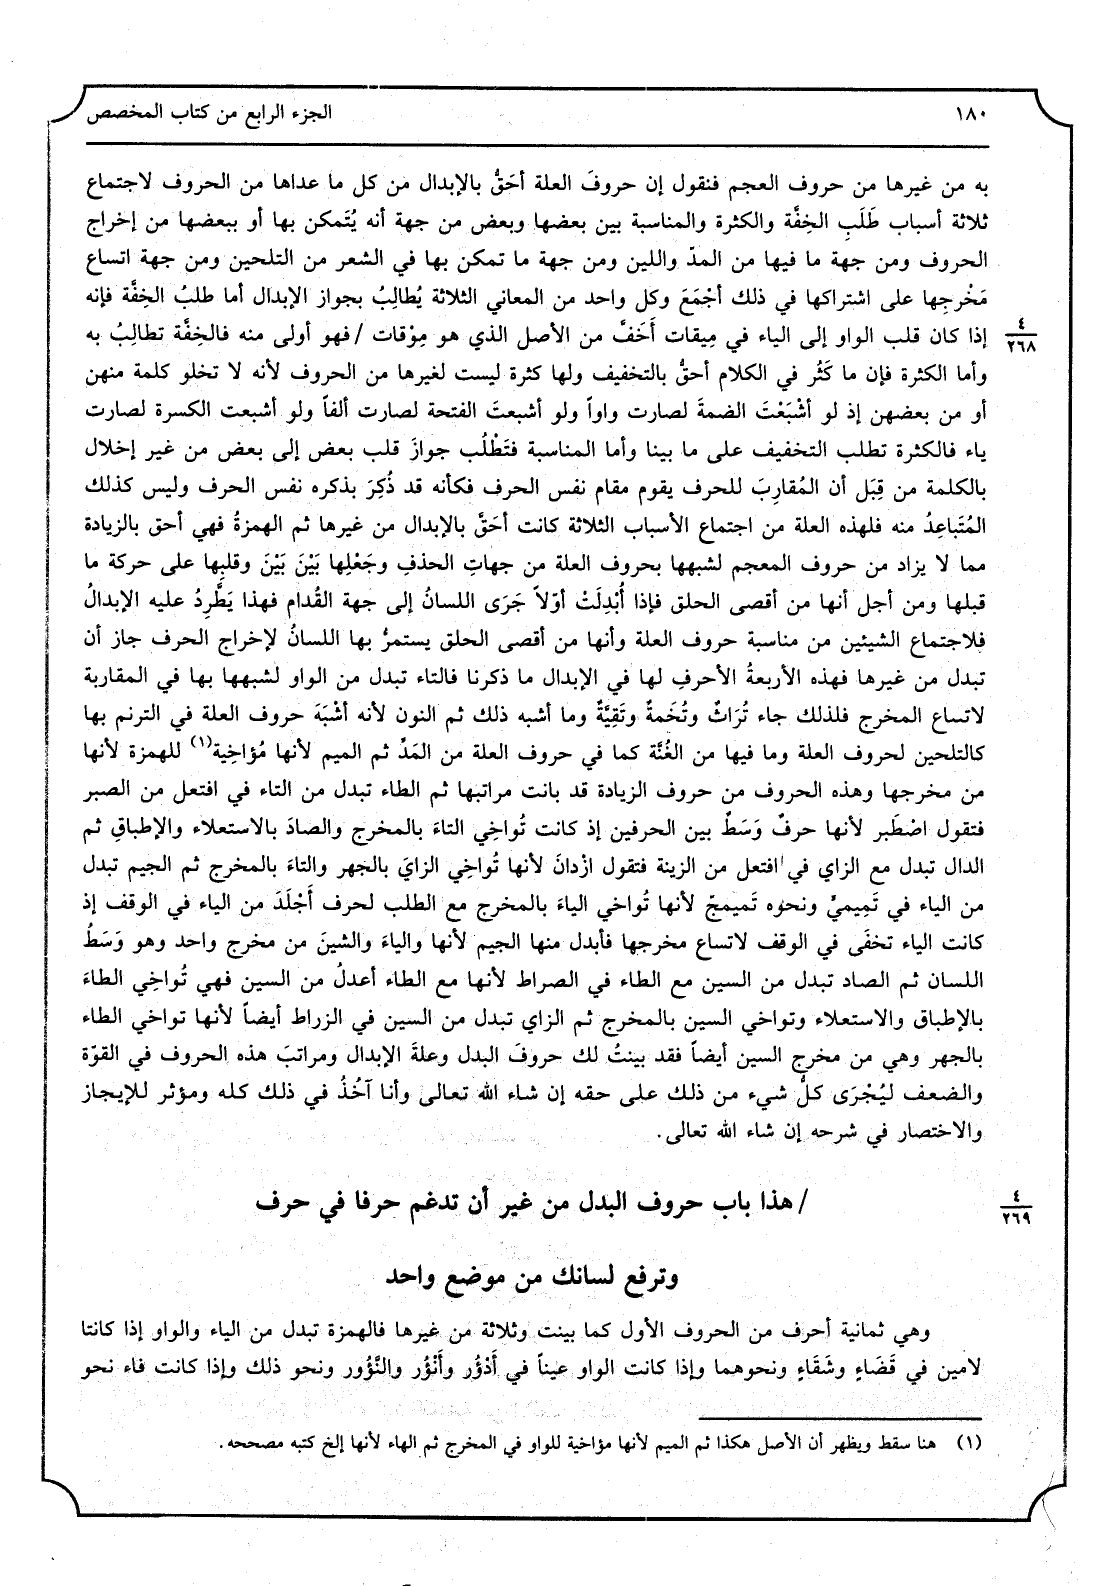 ١٨٠
الجزء الرابع من كتاب المخصص
به من غيرها من حروف العجم فنقول إن حروفَ العلة أحَقُّ بالإبدال من كل ما عداها من الحروف لاجتماع
ثلاثة أسباب طَلَبِ الخِفَّة والكثرة والمناسبة بين بعضها وبعض من جهة أنه يُتَمكن بها أو ببعضها من إخراج
الحروف ومن جهة ما فيها من المدّ واللين ومن جهة ما تمكن بها في الشعر من التلحين ومن جهة اتساع
مَخْرجِها على اشتراكها في ذلك أجْمَعَ وكل واحد من المعاني الثلاثة يُطالِبُ بجواز الإبدال أما طلبُ الخِفَّة فإنه
إذا كان قلب الواو إلى الياء في مِيقات أَخَفَّ من الأصل الذي هو مِوْقات / فهو أولى منه فالخِفَّة تطالِبُ به
٤
٢٦٨
وأما الكثرة فإن ما كَثُر في الكلام أحقُّ بالتخفيف ولها كثرة ليست لغيرها من الحروف لأنه لا تخلو كلمة منهن
أو من بعضهن إذ لو أشْبَعْتَ الضمةَ لصارت واواً ولو أشبعتَ الفتحة لصارت ألفاً ولو أشبعت الكسرة لصارت
ياء فالكثرة تطلب التخفيف على ما بينا وأما المناسبة فتَطْلُب جوازَ قلب بعض إلى بعض من غير إخلال
بالكلمة من قِبَل أن المُقارِبَ للحرف يقوم مقام نفس الحرف فكأنه قد ذُكِرَ بذكره نفس الحرف وليس كذلك
المُتَباعِدُ منه فلهذه العلة من اجتماع الأسباب الثلاثة كانت أحَقَّ بالإبدال من غيرها ثم الهمزةُ فهي أحق بالزيادة
مما لا يزاد من حروف المعجم لشبهها بحروف العلة من جهاتِ الحذفِ وجَعْلِها بَيْنَ بَيْنَ وقلبِها على حركة ما
قبلها ومن أجل أنها من أقصى الحلق فإذا أُبْدِلَتْ أوّلاً جَرَى اللسانُ إلى جهة القُدام فهذا يَطَّرِدُ عليه الإبدالُ
فلاجتماع الشيئين من مناسبة حروف العلة وأنها من أقصى الحلق يستمرُّ بها اللسانُ لإخراج الحرف جاز أن
تبدل من غيرها فهذه الأربعةُ الأحرفِ لها في الإبدال ما ذكرنا فالتاء تبدل من الواو لشبهها بها في المقاربة
لاتساع المخرج فلذلك جاء تُرَاثٌ وتُخَمةٌ وتَقِيَّةٌ وما أشبه ذلك ثم النون لأنه أشْبَهَ حروف العلة في الترنم بها
كالتلحين لحروف العلة وما فيها من الغُنَّة كما في حروف العلة من المَدِّ ثم الميم لأنها مُؤاخِية(١) للهمزة لأنها
من مخرجها وهذه الحروف من حروف الزيادة قد بانت مراتبها ثم الطاء تبدل من التاء في افتعل من الصبر
فتقول اصْطَبر لأنها حرفٌ وَسَطٌ بين الحرفين إذ كانت تُواخِي التاءَ بالمخرج والصادَ بالاستعلاء والإطباقِ ثم
الدال تبدل مع الزاي في افتعل من الزينة فتقول ازْدانَ لأنها تُواخِي الزايَ بالجهر والتاءَ بالمخرج ثم الجيم تبدل
من الياء في تَمِيميٍّ ونحوه تَميمجّ لأنها تُواخي الياءَ بالمخرج مع الطلب لحرف أَجْلَدَ من الياء في الوقف إذ
كانت الياء تخفَى في الوقف لاتساع مخرجها فأبدل منها الجيم لأنها والياءَ والشينَ من مخرج واحد وهو وَسَطُ
اللسان ثم الصاد تبدل من السين مع الطاء في الصراط لأنها مع الطاء أعدلُ من السين فهي تُواخِي الطاءَ
بالإطباق والاستعلاء وتواخي السين بالمخرج ثم الزاي تبدل من السين في الزراط أيضاً لأنها تواخي الطاء
بالجهر وهي من مخرج السين أيضاً فقد بينتُ لك حروفَ البدل وعلةَ الإبدال ومراتبَ هذه الحروف في القوّة
والضعف ليُجْرَى كلُّ شيء من ذلك على حقه إن شاء الله تعالى وأنا آخُذُ في ذلك كله ومؤثر للإيجاز
والاختصار في شرحه إن شاء الله تعالى.
/ هذا باب حروف البدل من غير أن تدغم حرفا في حرف
٤
٢٦٩
وترفع لسانك من موضع واحد
وهي ثمانية أحرف من الحروف الأول كما بينت وثلاثة من غيرها فالهمزة تبدل من الياء والواو إذا كانتا
لامين في قَضَاءٍ وشَقَاءٍ ونحوهما وإذا كانت الواو عيناً في أَدْؤُر وأَنْؤُر والنَّؤُور ونحو ذلك وإذا كانت فاء نحو
(١) هنا سقط ويظهر أن الأصل هكذا ثم الميم لأنها مؤاخية للواو في المخرج ثم الهاء لأنها إلخ كتبه مصححه.